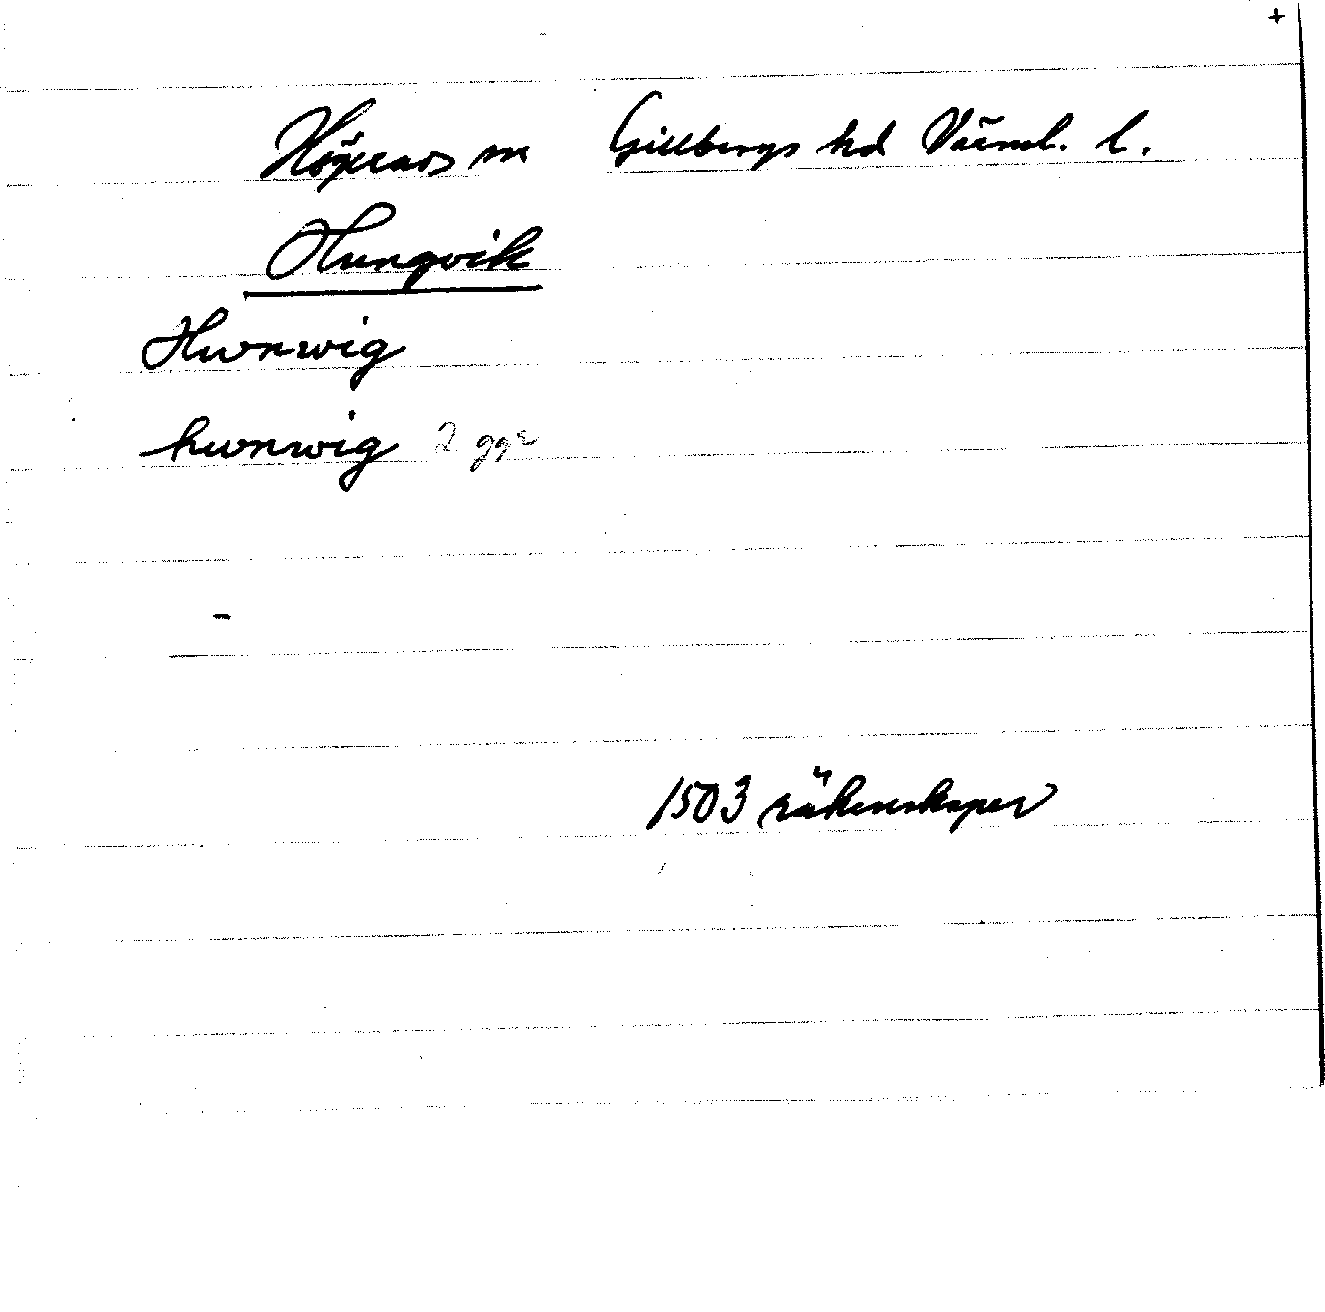 +
Högeruds sn Gillbergs hd Värml. l.
Hungvik
Hwnwig
hwnwig 2 ggr
1503 räkenskaper